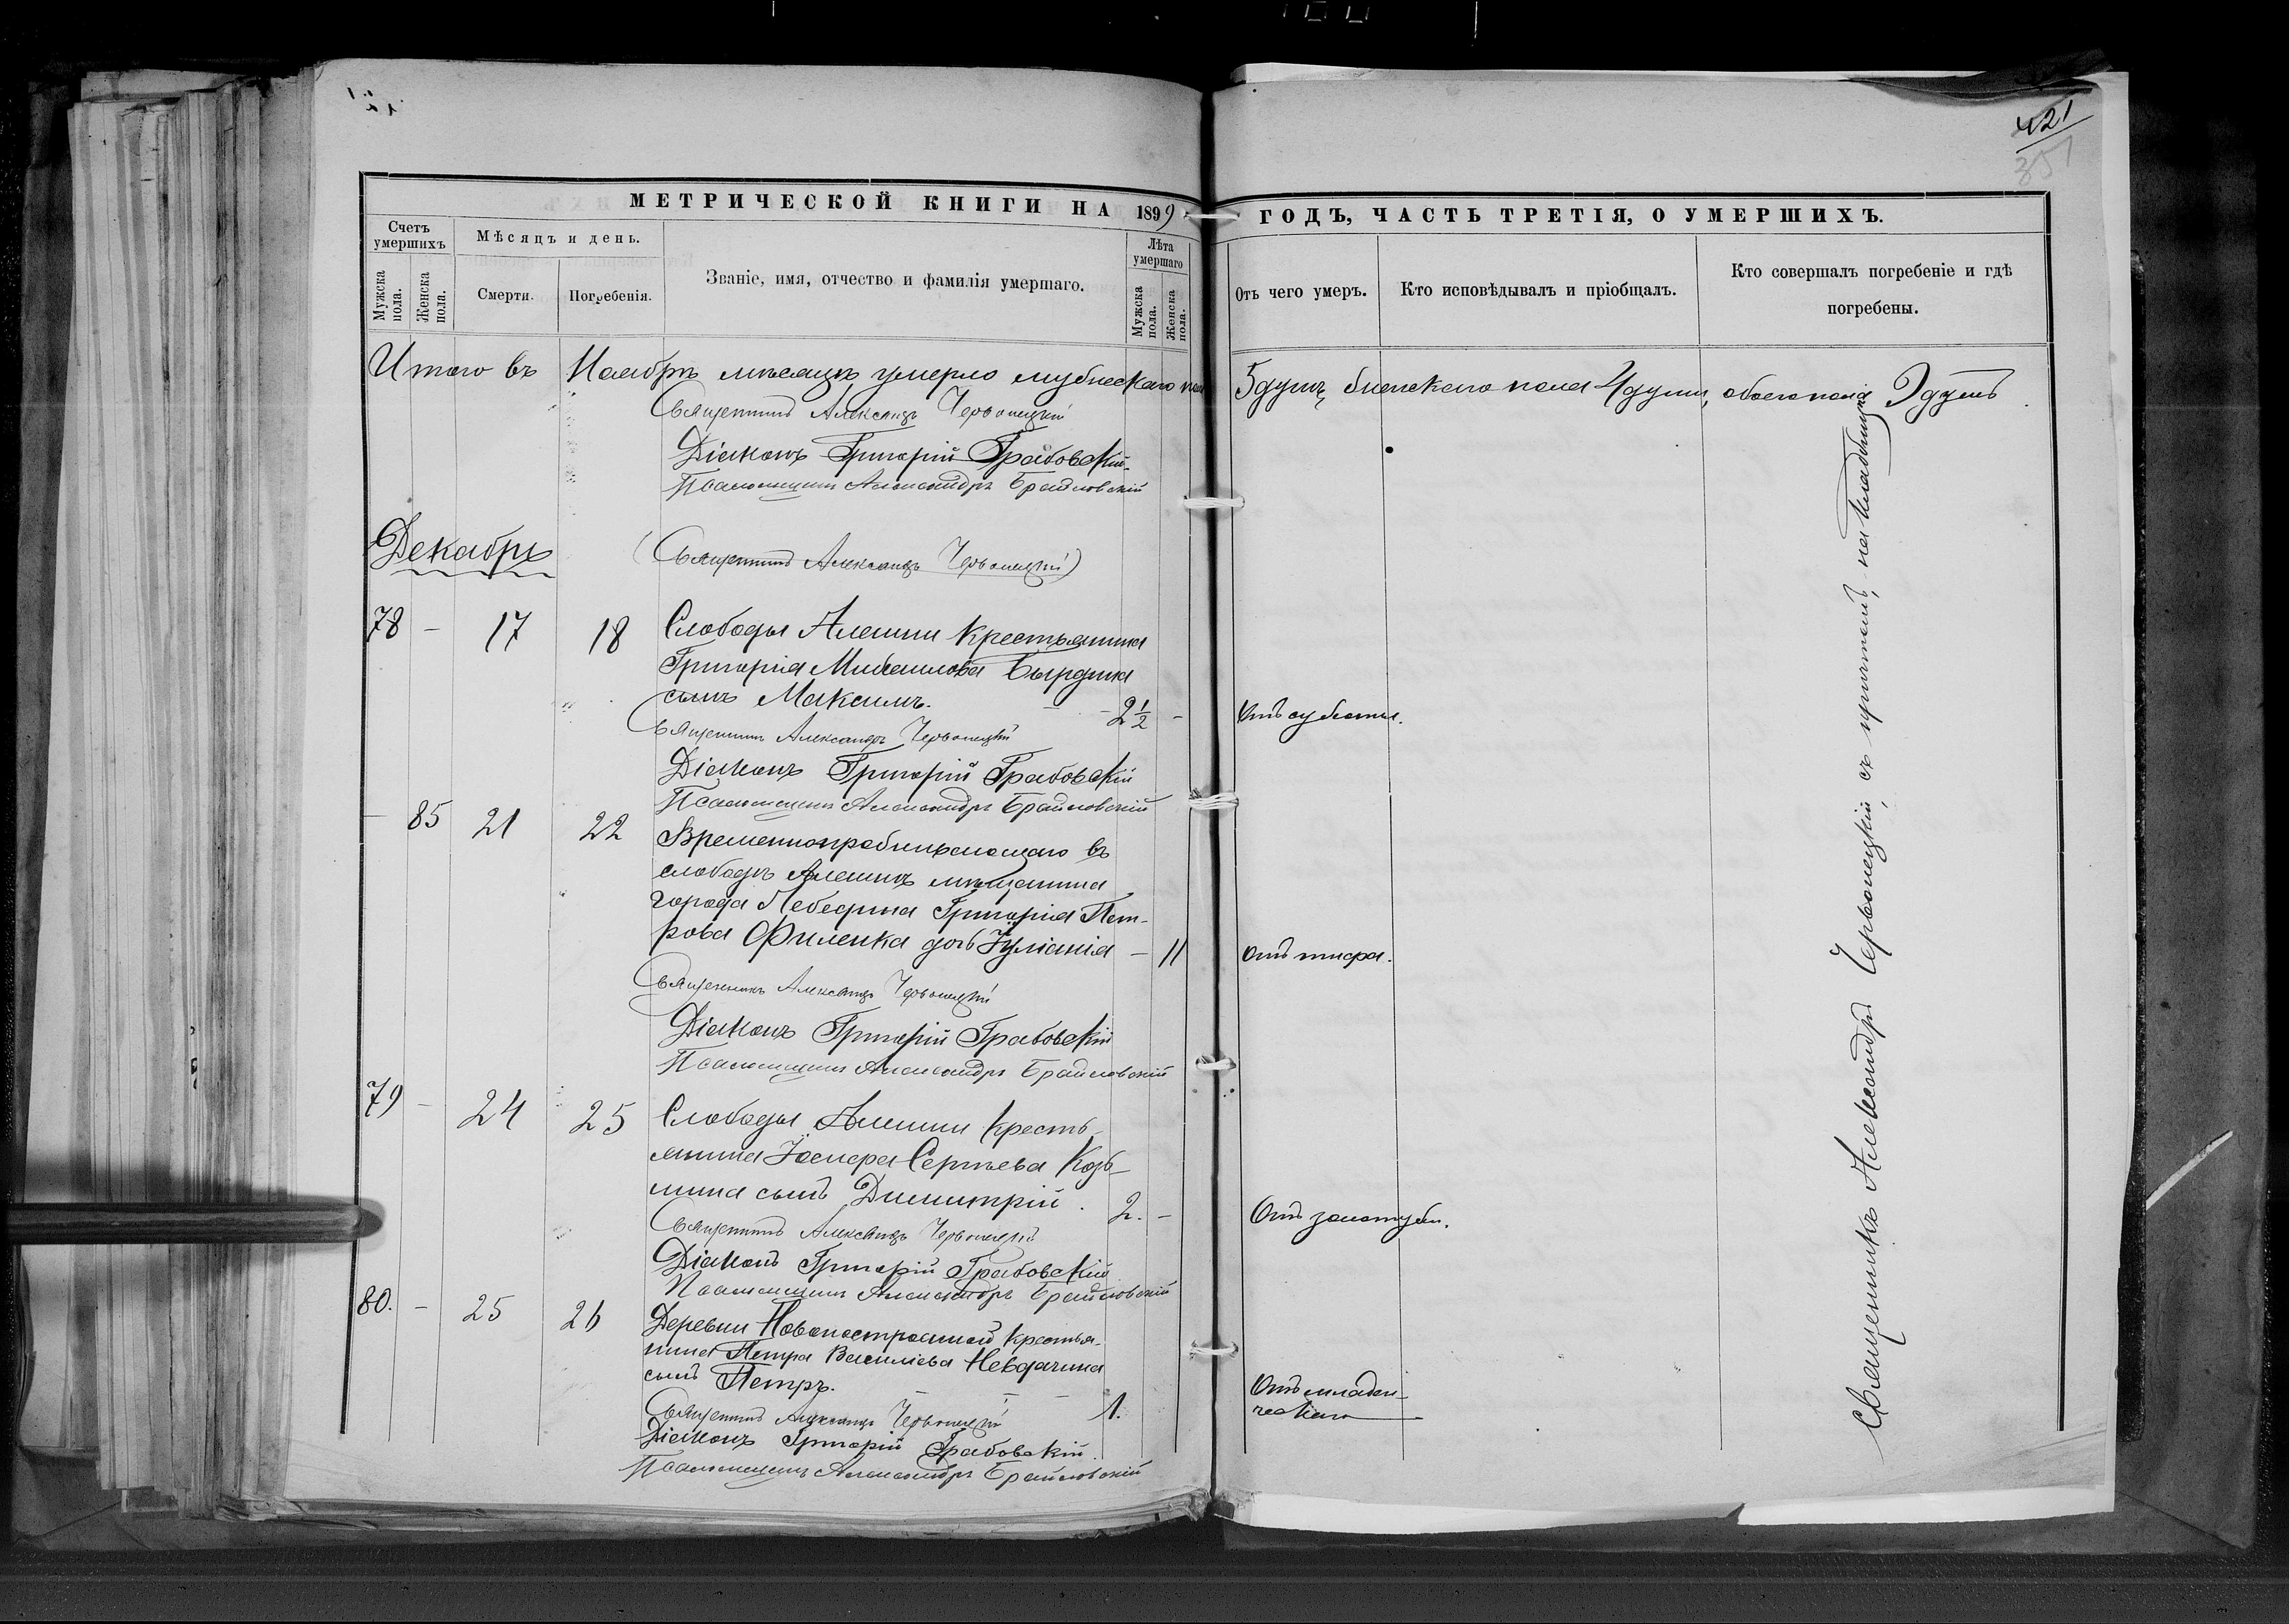 421
351
МЕТРИЧЕСКОЙ КНИГИ НА 1899
ГОДЪ, ЧАСТЬ ТРЕТІЯ, О УМЕРШИХЪ.
Счетъ умершихъ
Мужска пола.
Женска пола.
Мѣсяцъ и день.
Смерти.
Погребенія.
Званіе, имя, отчество и фамилія умершаго.
Лѣта умершаго
Мужска пола.
Женска пола.
Отъ чего умеръ.
Кто исповѣдывалъ и пріобщалъ.
Кто совершалъ погребеніе и гдѣ
погребены.
Итого въ Ноябрѣ мѣсяцѣ умерло мужескаго пола 5 душъ, женскаго пола 4 души, обоего пола 9 душъ
Священникъ Александръ Червонецкій
Діаконъ Григорій Грабовскій
Псаломщикъ Александръ Браиловскій
Декабрь
(Священникъ Александръ Червонецкій)
78 – 17 18 Слободы Алешни крестьянина
Григорія Михаилова Бырдина
сынъ Максимъ. – 2½ –
Священникъ Александръ Червонецкій
Діаконъ Григорій Грабовскій
Псаломщикъ Александръ Браиловскій
– 85 21 22 Временнопроживающаго въ
слободѣ Алешнѣ мѣщанина
города Лебедина Григорія Пет-
рова Филенка дочь Іуліанія – 11 Отъ тифа.
Священникъ Александръ Червонецкій
Діаконъ Григорій Грабовскій
Псаломщикъ Александръ Браиловскій
79 – 24 25 Слободы Алешни кресть-
янина Сергѣева Козь-
мина сынъ Димитрій. 2. – Отъ золотухи.
Священникъ Александръ Червонецкій
Діаконъ Григорій Грабовскій
Псаломщикъ Александръ Браиловскій
80. – 25 26 Деревни Новопостроенной крестья-
нина Петра Василіева Невдачина
сынъ Петръ. 1. Отъ младен-
ческаго
Священникъ Александръ Червонецкій
Діаконъ Григорій Грабовскій.
Псаломщикъ Александръ Браиловскій
Священникъ Александръ Червонецкій, съ причтомъ, на кладбищѣ